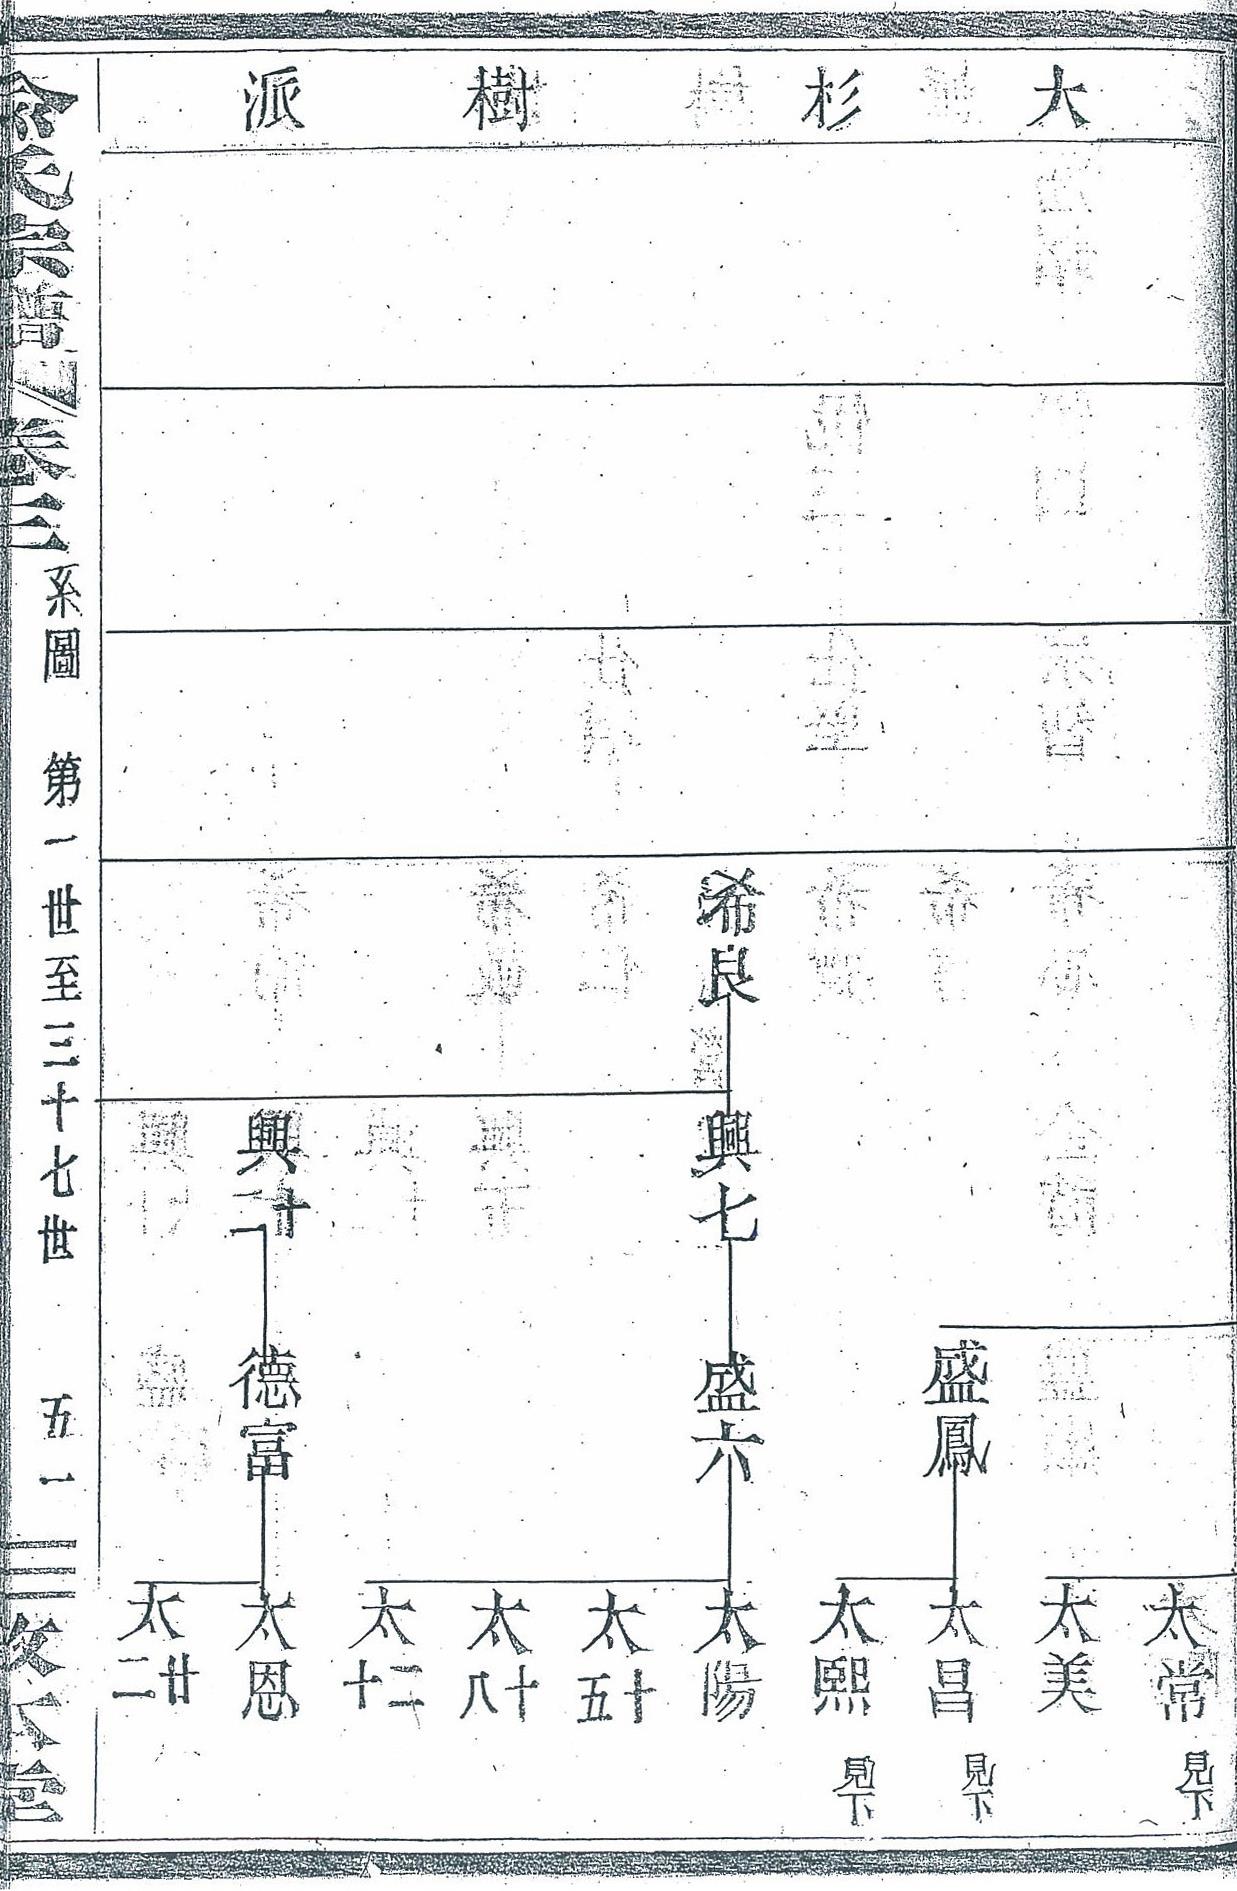 大杉樹派
希良
興七
興廿二
盛鳳
盛六
德富
太常 見下
太美
太昌 見下
太熙 見下
太陽
太十五
太十八
太二十
太恩
太廿二
系圖 第一世至三十七世 五一